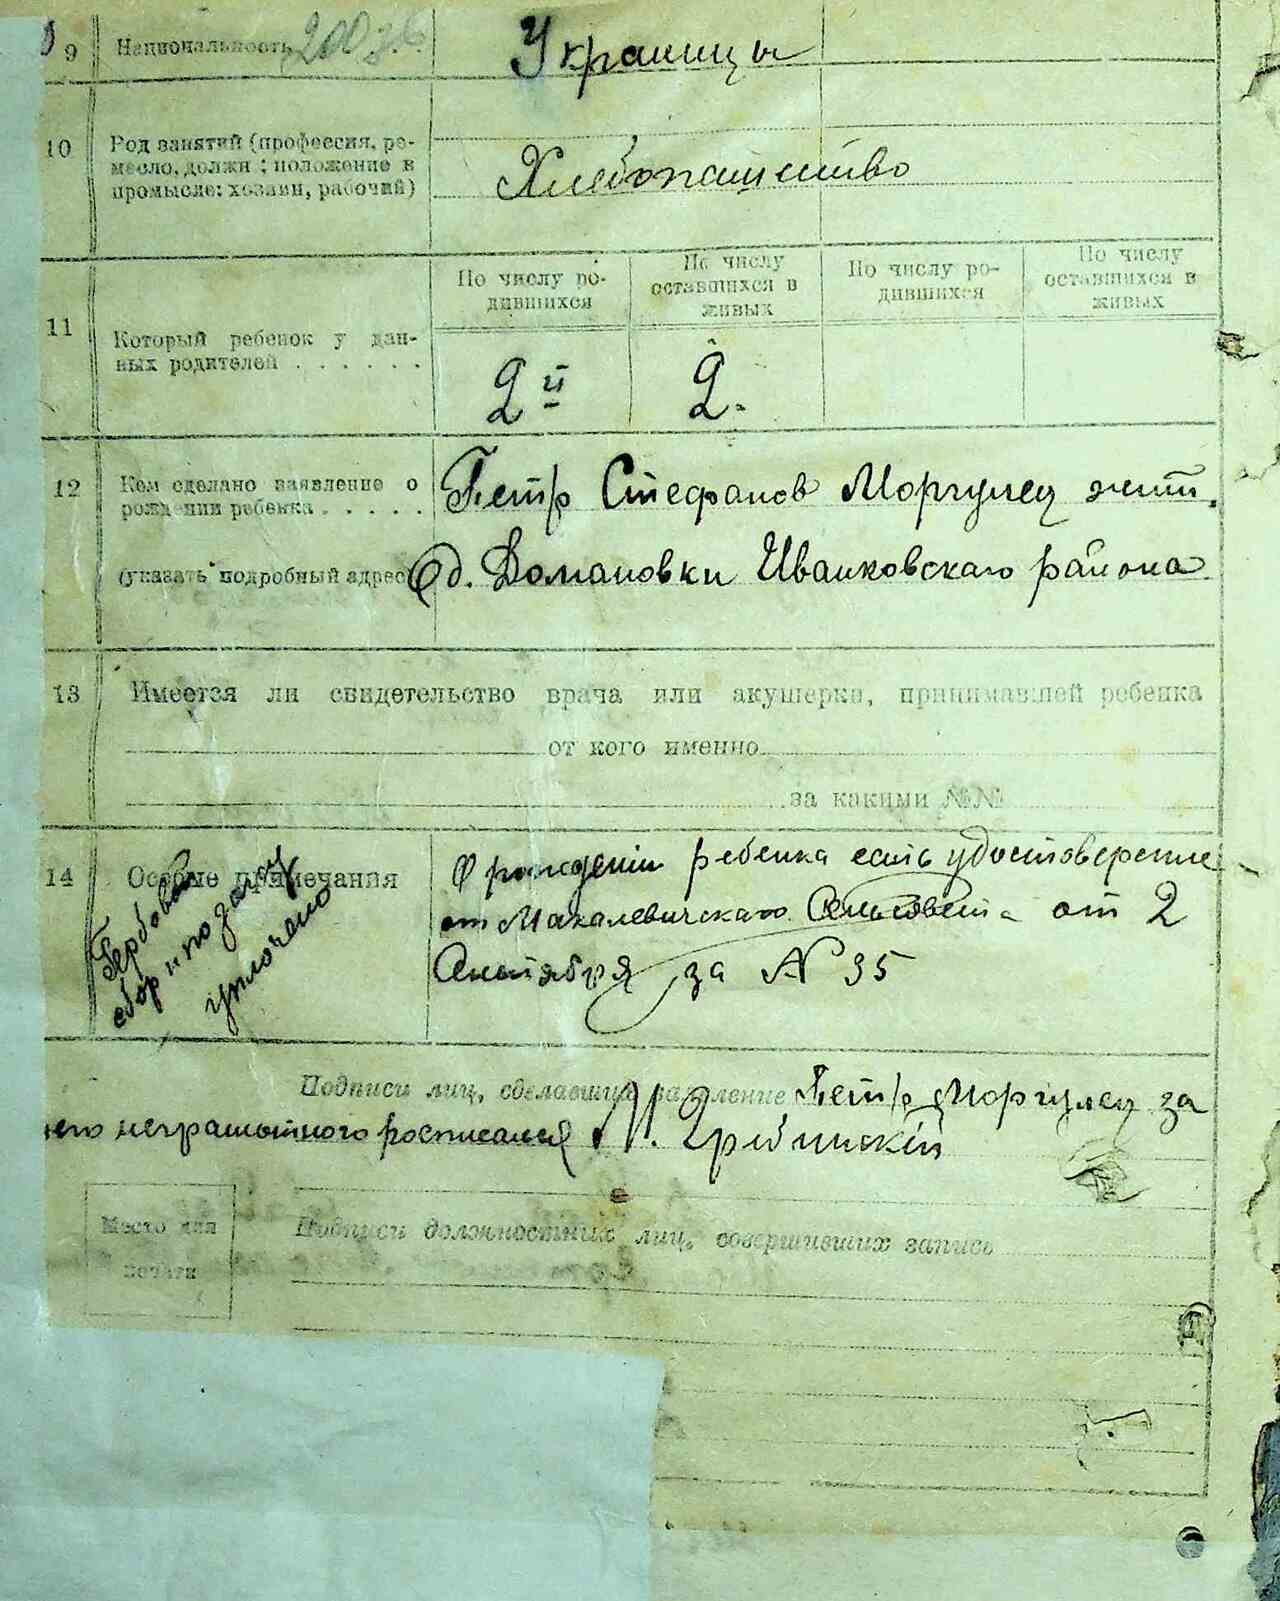 9 Национальность Украинцы
10 Род занятий (профессия, ре-
месло, должн; положение в
промысле: хозяин, рабочий)
Хлебопашество
11 Который ребенок у дан-
ных родителей . . . . . .
По числу ро-
дившихся
По числу
оставшихся в
живых
По числу ро-
дившихся
По числу
оставшихся в
живых
2й 2.
12 Кем сделано заявление о
рождении ребенка . . . . .
(указать подробный адрес)
Петр Стефанов Моргулец жит.
д. Домановки Иванковскаго района
13 Имеется ли свидетельство врача или акушерки, принимавшей ребенка
от кого именно
за какими №№
14 Особые примечания
Гербовый
сбор и по загсу
уплочено
О рождении ребенка есть удостоверение
от Макалевичскаго Сельсовета от 2
Сентября за № 35
Подписи лиц, сделавших заявление Петр Моргулец за
него неграмотного росписался
Место для
печати
Подписи должностных лиц, совершивших запись